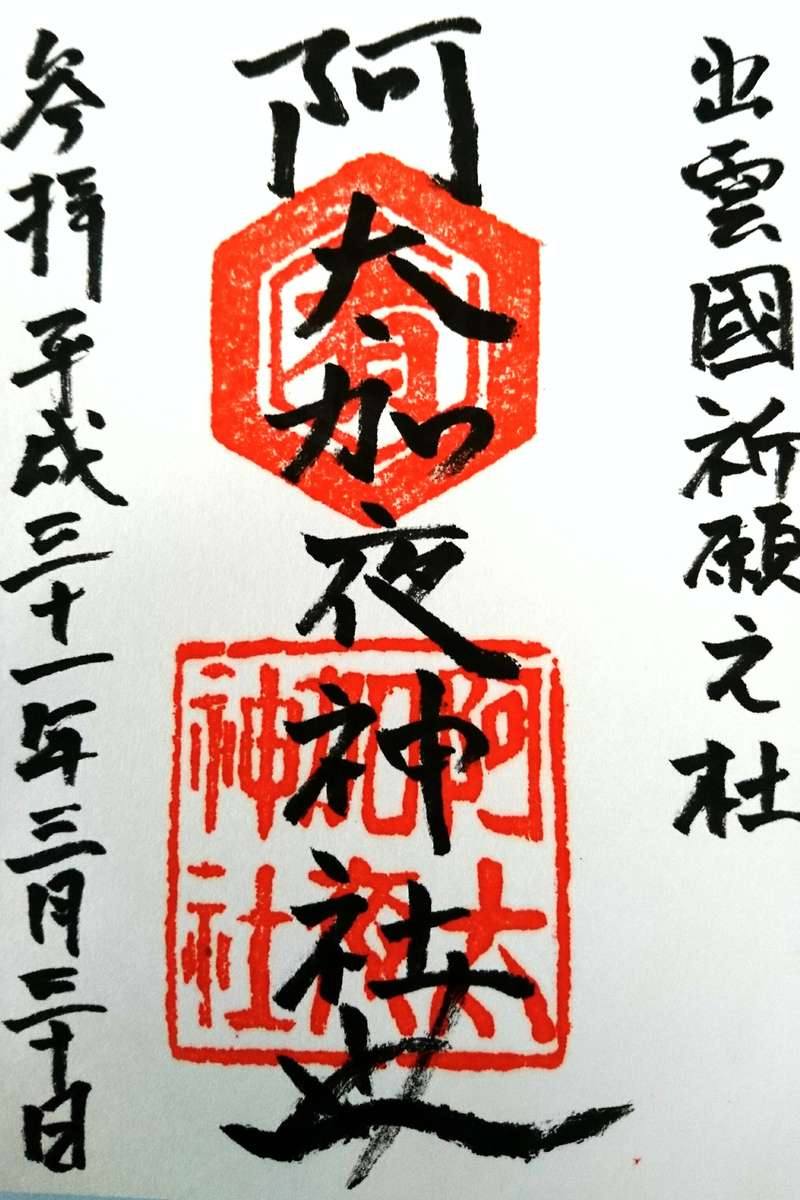 出雲國祈願之社
阿太加夜神社
参拝平成三十一年三月三十日
有
阿太
加夜
神社